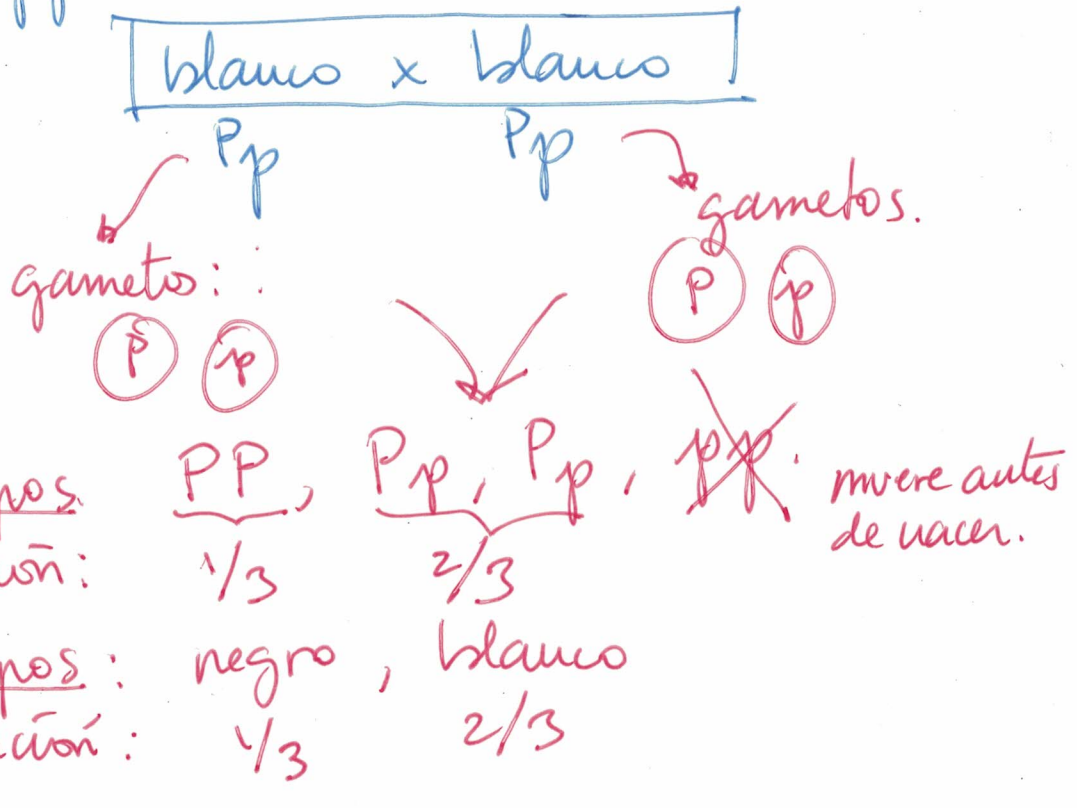 blanco x blanco
Pp Pp
gametos.
gametos:
P p
P p
PP, Pp, Pp, pp. muere antes
de nacer.
1/3 2/3
negro, blanco
1/3 2/3